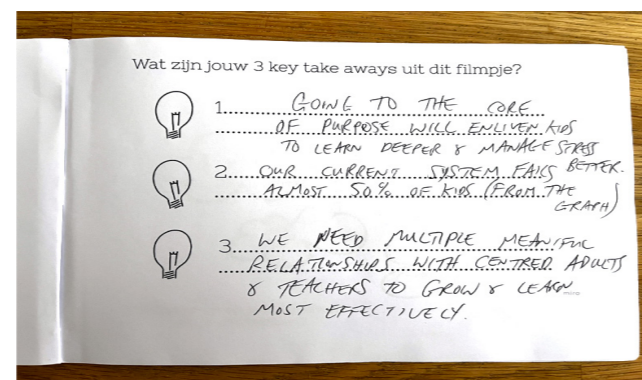 Wat zijn jouw 3 key take aways uit dit filmpje?
1. GOING TO THE CORE
OF PURPOSE WILL ENLIVEN KIDS
TO LEARN DEEPER & MANAGE STRESS
BETTER.
2. OUR CURRENT SYSTEM FAILS
ALMOST 50% OF KIDS (FROM THE
GRAPH)
3. WE NEED MULTIPLE MEANIFUL
RELATIONSHIPS WITH CENTRED ADULTS
& TEACHERS TO GROW & LEARN
MOST EFFECTIVELY.